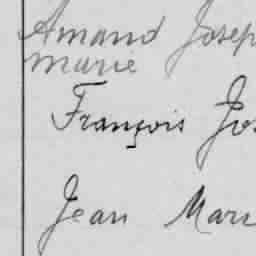 Amand Josep
marie
François Jos
Jean Mari